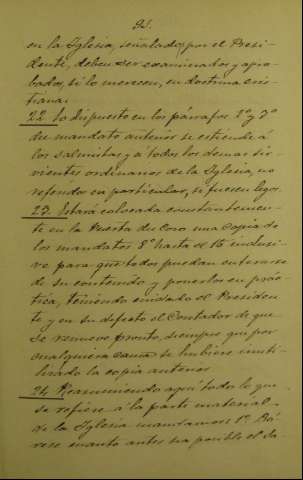 92.
en la Iglesia, señalados por el Presi-
dente, deben ser examinados y apro-
bados, si lo merecen, en doctrina cris-
tiana.
22 Lo dispuesto en los párrafos 1º y 3º
del mandato anterior se estiende á
los salmistas y á todos los demas sir-
vientes ordinarios de la Iglesia, no
refiriendo en particular, si fuesen legos.
23. Estará colocada constantemen-
te en la Puerta del Coro una Copia de
los mandatos 8º hasta el 15 inclusi-
ve para que todos puedan enterarse
de su contenido y ponerlos en prác-
tica, teniendo cuidado el Presiden-
te y en su defecto el Contador de que
se renueve pronto, siempre que por
cualquiera causa se hubiere inuti-
lizado la copia anterior
24 Reasumiendo aquí todo lo que
se refiere á la parte material
de la Iglesia mandamos: 1º
rese cuanto antes sea posible el